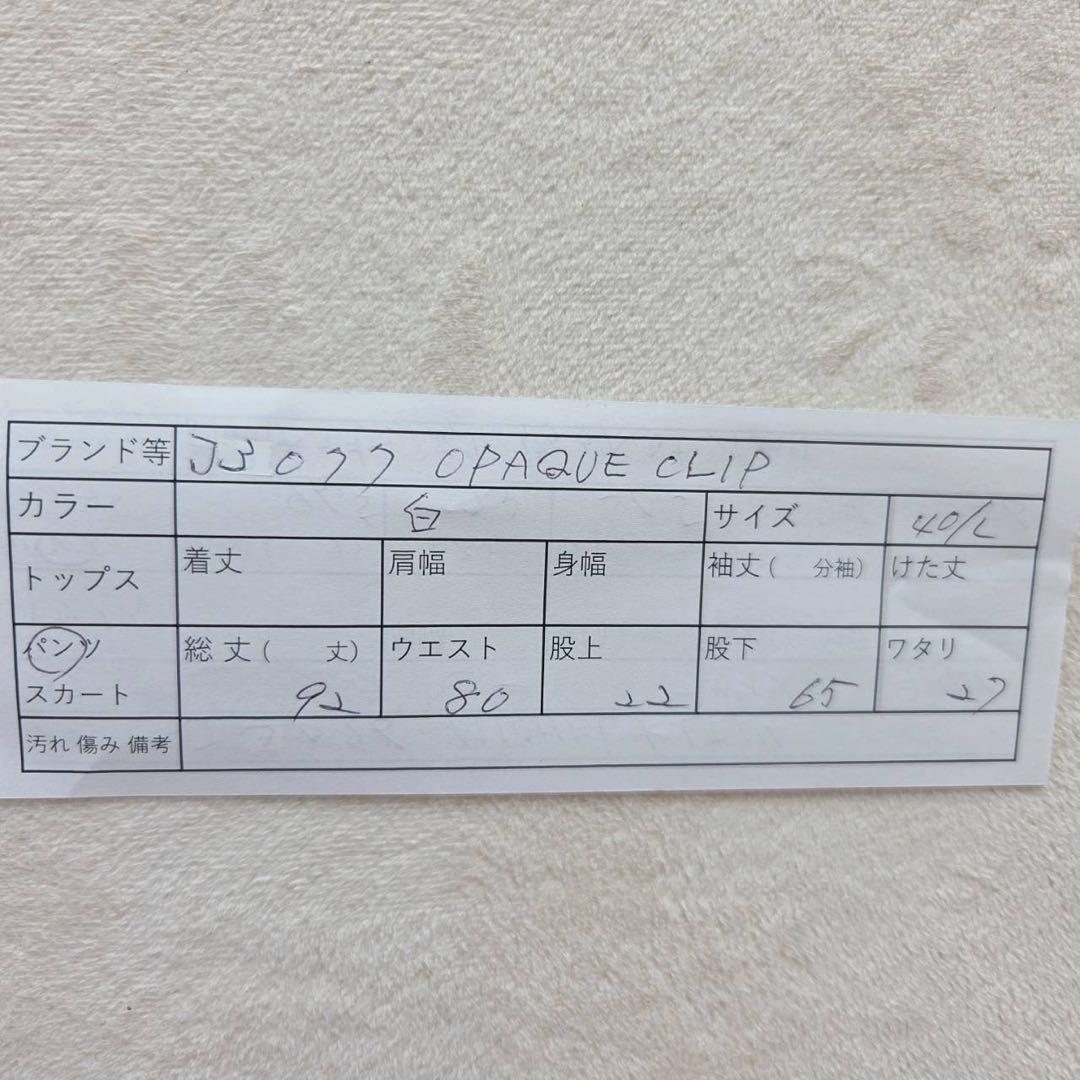 ブランド等 J3077 OPAQUE CLIP
カラー 白 サイズ 40/L
トップス 着丈 肩幅 身幅 袖丈( 分袖) けた丈
パンツ 総丈( 丈) ウエスト 股上 股下 ワタリ
スカート 92 80 22 65 27
汚れ 傷み 備考